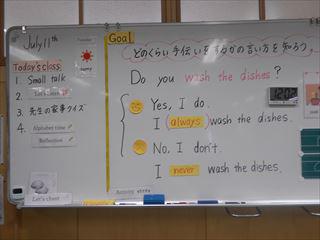 July 11th
Tuesday
sunny
Today's class
1. Small talk
2. Let's listen
3. 先生の家事クイズ
4. Alphabet time
Reflection
Let's chant
Goal
どのくらい手伝いをするかの言い方を知ろう
Do you wash the dishes?
Yes, I do.
I (always) wash the dishes.
No, I don't.
I never wash the dishes.